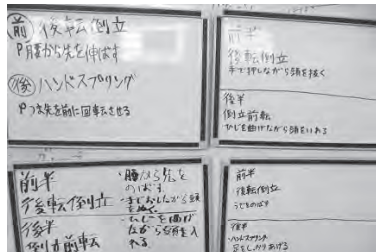 前 後転倒立
P 腰から先を伸ばす
後 ハンドスプリング
P つま先を前に回転させる
前半
後転倒立
手で押しながら頭を抜く
後半
倒立前転
ひじを曲げながら頭をいれる
前半
後転倒立
・腰から先を
のばす。
・手でおしながら頭
をぬく
後半
倒立前転
・ひじを曲げ
ながら頭を入
れる。
前半
後転倒立
うでをのばす
後半
・ハンドスプリング
足をしっかりあげる